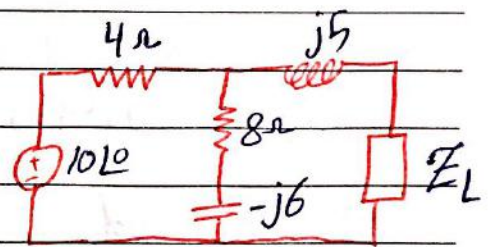 4Ω
j5
8Ω
+
-
10∠0
-j6
Z_L